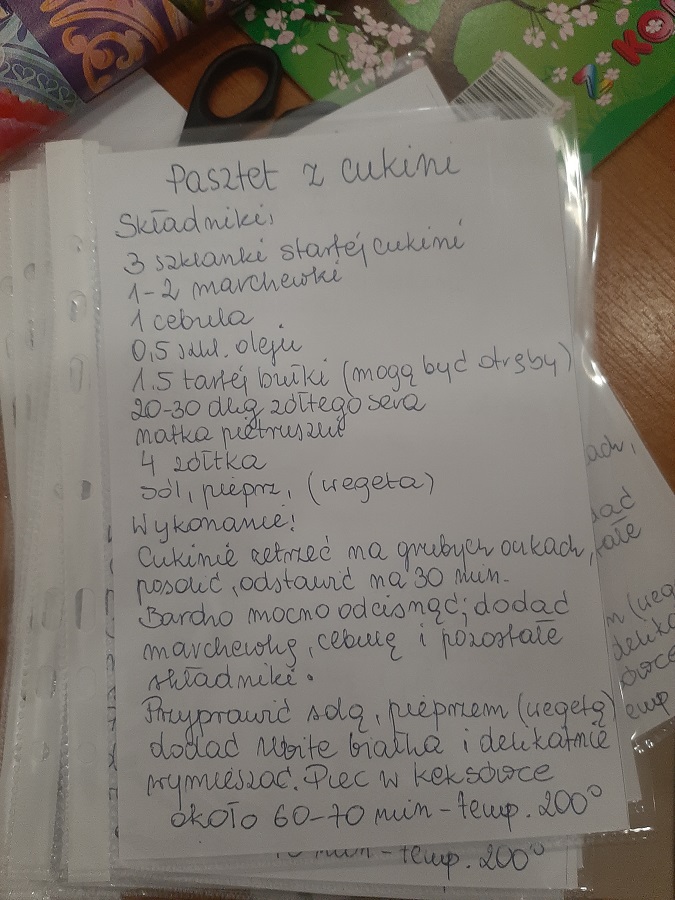 KOL
Pasztet z cukini
Składniki:
3 szklanki startej cukini
1-2 marchewki
1 cebula
0,5 szkl. oleju
1.5 tartej bułki (mogą być otręby)
20-30 dkg żółtego sera
natka pietruszki
4 żółtka
sól, pieprz, (vegeta)
Wykonanie:
Cukinie zetrzeć na grubych oczkach,
posolić, odstawić na 30 min.
Bardzo mocno odcisnąć; dodać
marchewkę, cebulę i pozostałe
składniki.
Przyprawić solą, pieprzem (vegetą)
dodać ubite białka i delikatnie
wymieszać. Piec w keksówce
około 60-70 min - temp. 200°
min - temp. 200°